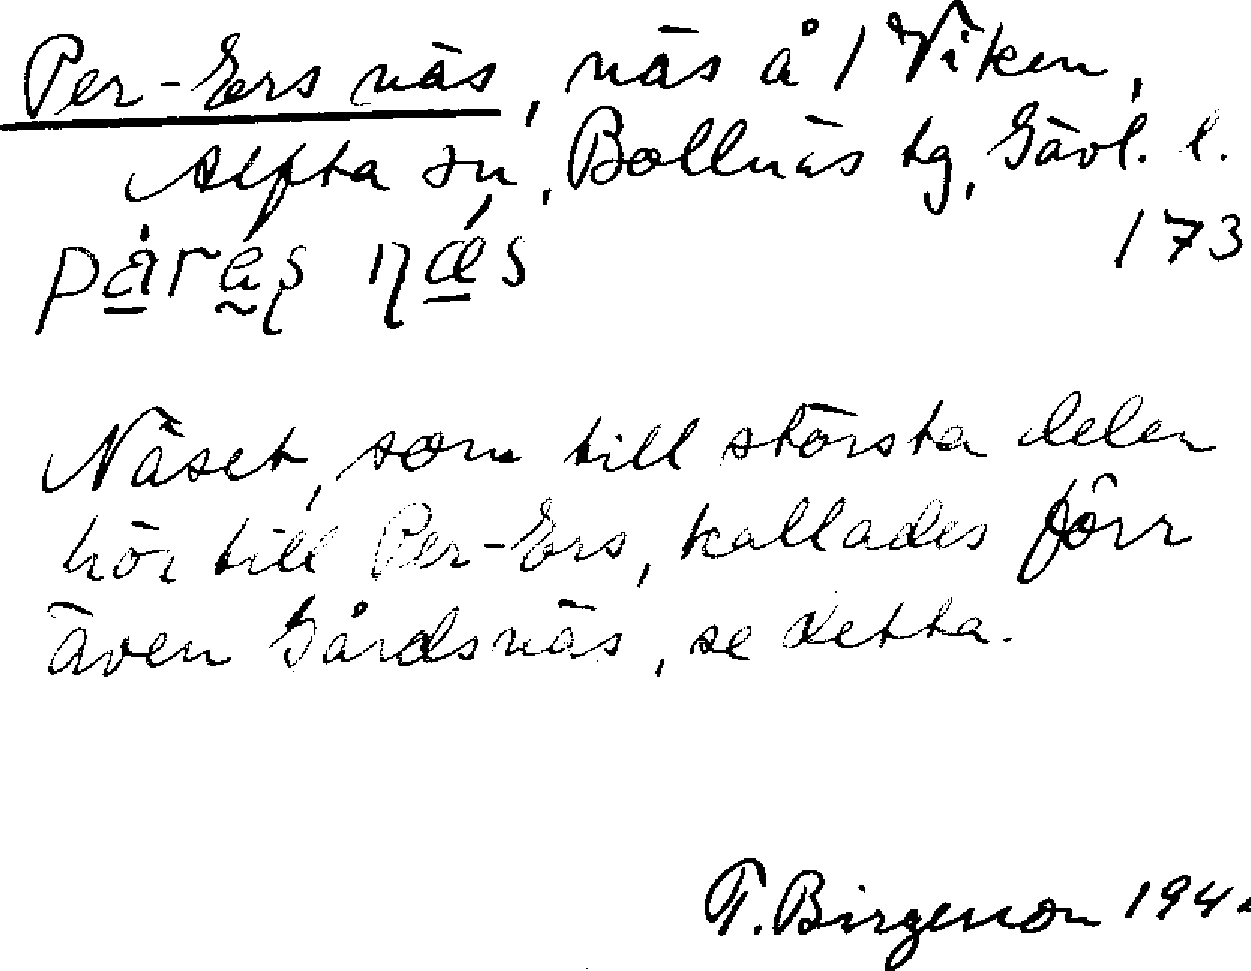 Per-Ers näs, näs å 1 Viken,
Alfta sn, Bollnäs tg, Gävl. l.
173
Näset, som till största delen
hör till Per-Ers, kallades förr
även Gårdsnäs, se detta.
T. Birgerson 194